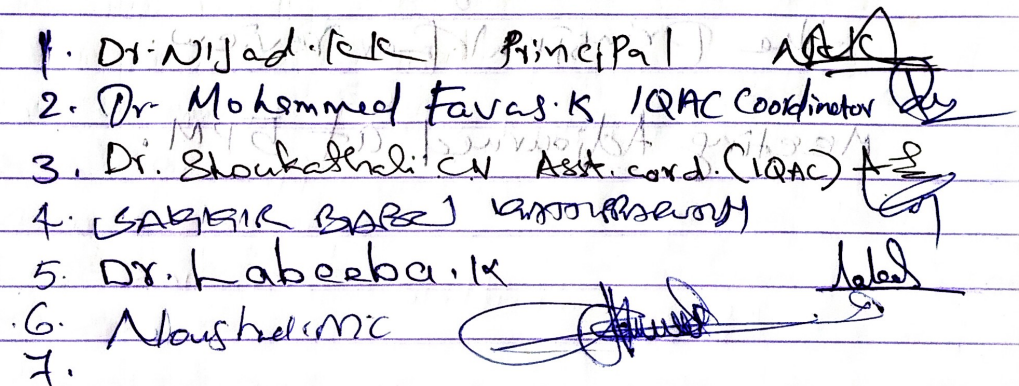 1. Dr. Nijad. KK Principal
2. Dr Mohammed Favas. K IQAC Coordinator
3. Dr. Shoukathali CN Asst. cord. (IQAC)
4. SAKKIR BABU
5. Dr. Labeeba. K
6. Noushad MC
7.